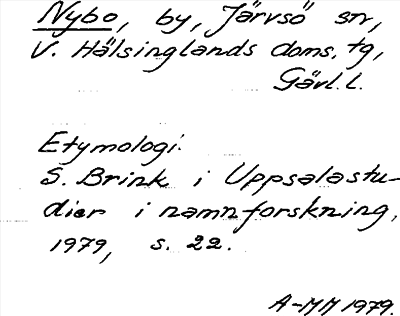 Nybo, by, Järvsö sn,
V. Hälsinglands doms. tg,
Gävl. l.
Etymologi:
S. Brink i Uppsalastu-
dier i namnforskning,
1979, s. 22.
A-MM 1979.